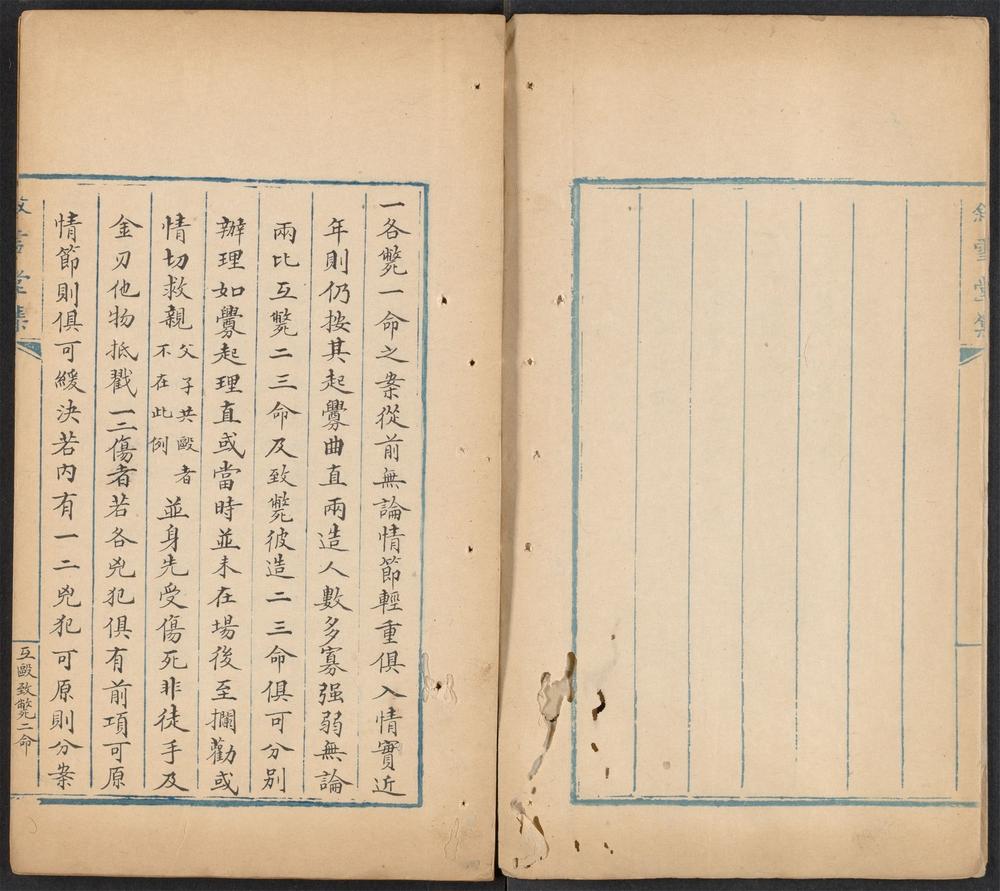 一各斃一命之案從前無論情節輕重俱入情實近
年則仍按其起釁曲直兩造人數多寡强弱無論
兩比互斃二三命及致斃彼造二三命俱可分别
辦理如釁起理直或當時並未在場後至攔勸或
情切救親父子共毆者不在此例並身先受傷死非徒手及
金刃他物抵戳一二傷者若各兇犯俱有前項可原
情節則俱可緩決若内有一二兇犯可原則分案
互毆致斃二命